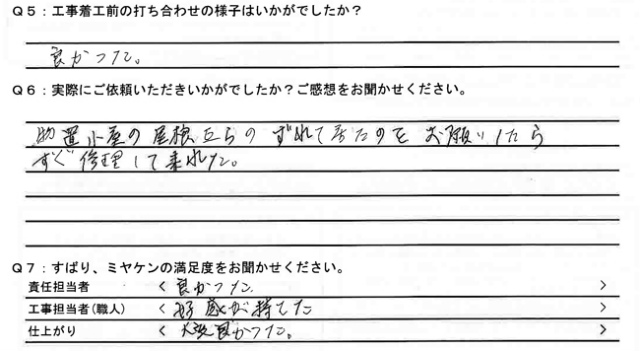 Q5：工事着工前の打ち合わせの様子はいかがでしたか？
良かった。
Q6：実際にご依頼いただきいかがでしたか？ご感想をお聞かせください。
物置小屋の屋根瓦らの ずれて居たのを お願いしたら
すぐ修理して来れた。
Q7：ずばり、ミヤケンの満足度をお聞かせください。
責任担当者 < 良かった >
工事担当者(職人) < 好感が持てた >
仕上がり < 大変良かった。 >